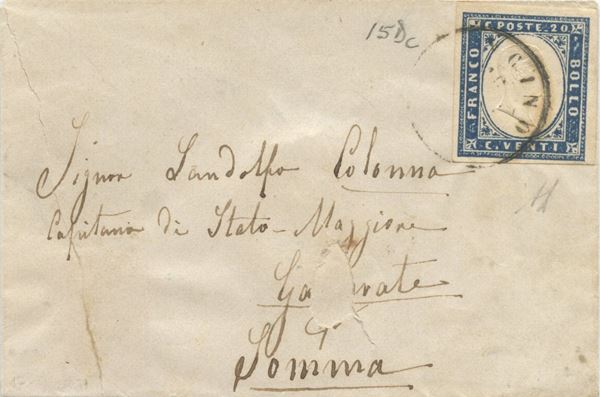 15Dc
C. POSTE 20.
FRANCO
BOLLO
C. VENTI
Signor Landolfo Colonna
Capitano di Stato-Maggiore
Somma